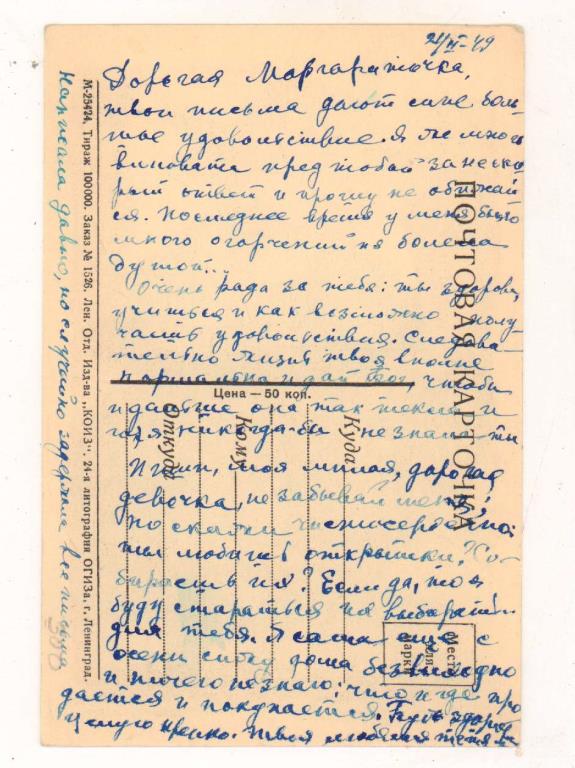 21/II-49
Дорогая Маргариточка,
твои письма дают мне боль-
шое удовольствие. Я же много
виновата пред тобой за неско-
рый ответ и прошу не обижай
ся. Последнее время у меня было
много огорчений и я болела
душой...
Очень рада за тебя: ты здорова,
учишься и как возможно полу
чаешь удовольствия. Следова-
тельно жизнь твоя вполне
нормальна и дай Бог, чтобы
и дальше она так текла и
горя никогда бы не знала ты
Пиши, моя милая, дорогая
девочка, не забывай меня;
но скажи чистосердечно:
ты любишь открытки? Со-
бираешь их? Если да, то я
буду стараться их выбирать
для тебя. Я сама еще с
осени сижу дома безвыходно
и ничего не знаю: что и где про
дается и покупается. Будь здорова
Целую крепко. Твоя любящая тетя
Написала давно, но случайно задержала все письма
М-25424. Тираж 100000. Заказ № 1526. Лен. Отд. Изд-ва „КОИЗ". 24-я литография ОГИЗа, г. Ленинград.
ПОЧТОВАЯ КАРТОЧКА
Цена — 50 коп.
Куда
Кому
Откуда
Место
для
марки